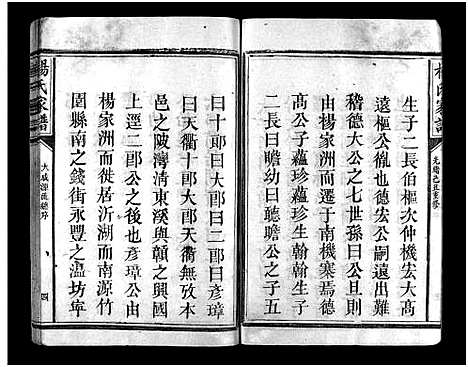 楊氏家譜
光緒己丑重修
生子二長伯樞次仲機宏大高
遠樞公胤也德宏公嗣遠出難
稽德大公之七世孫曰公旦則
楊家洲而遷于南機寨焉德
高公子蘊珍蘊珍生翰翰生子
四曰瞻曰聸曰
聸公之子五
曰十郎曰大郎曰二郎曰彥璋
曰天衢十郎大郎天衢無攷本
邑之陂灣清東溪與贛之興國
上逕二郎公之後也彥璋公由
楊家洲而徙居沂湖而南源竹
園縣南之錢街永豐之溫坊寧
四
楊氏家譜